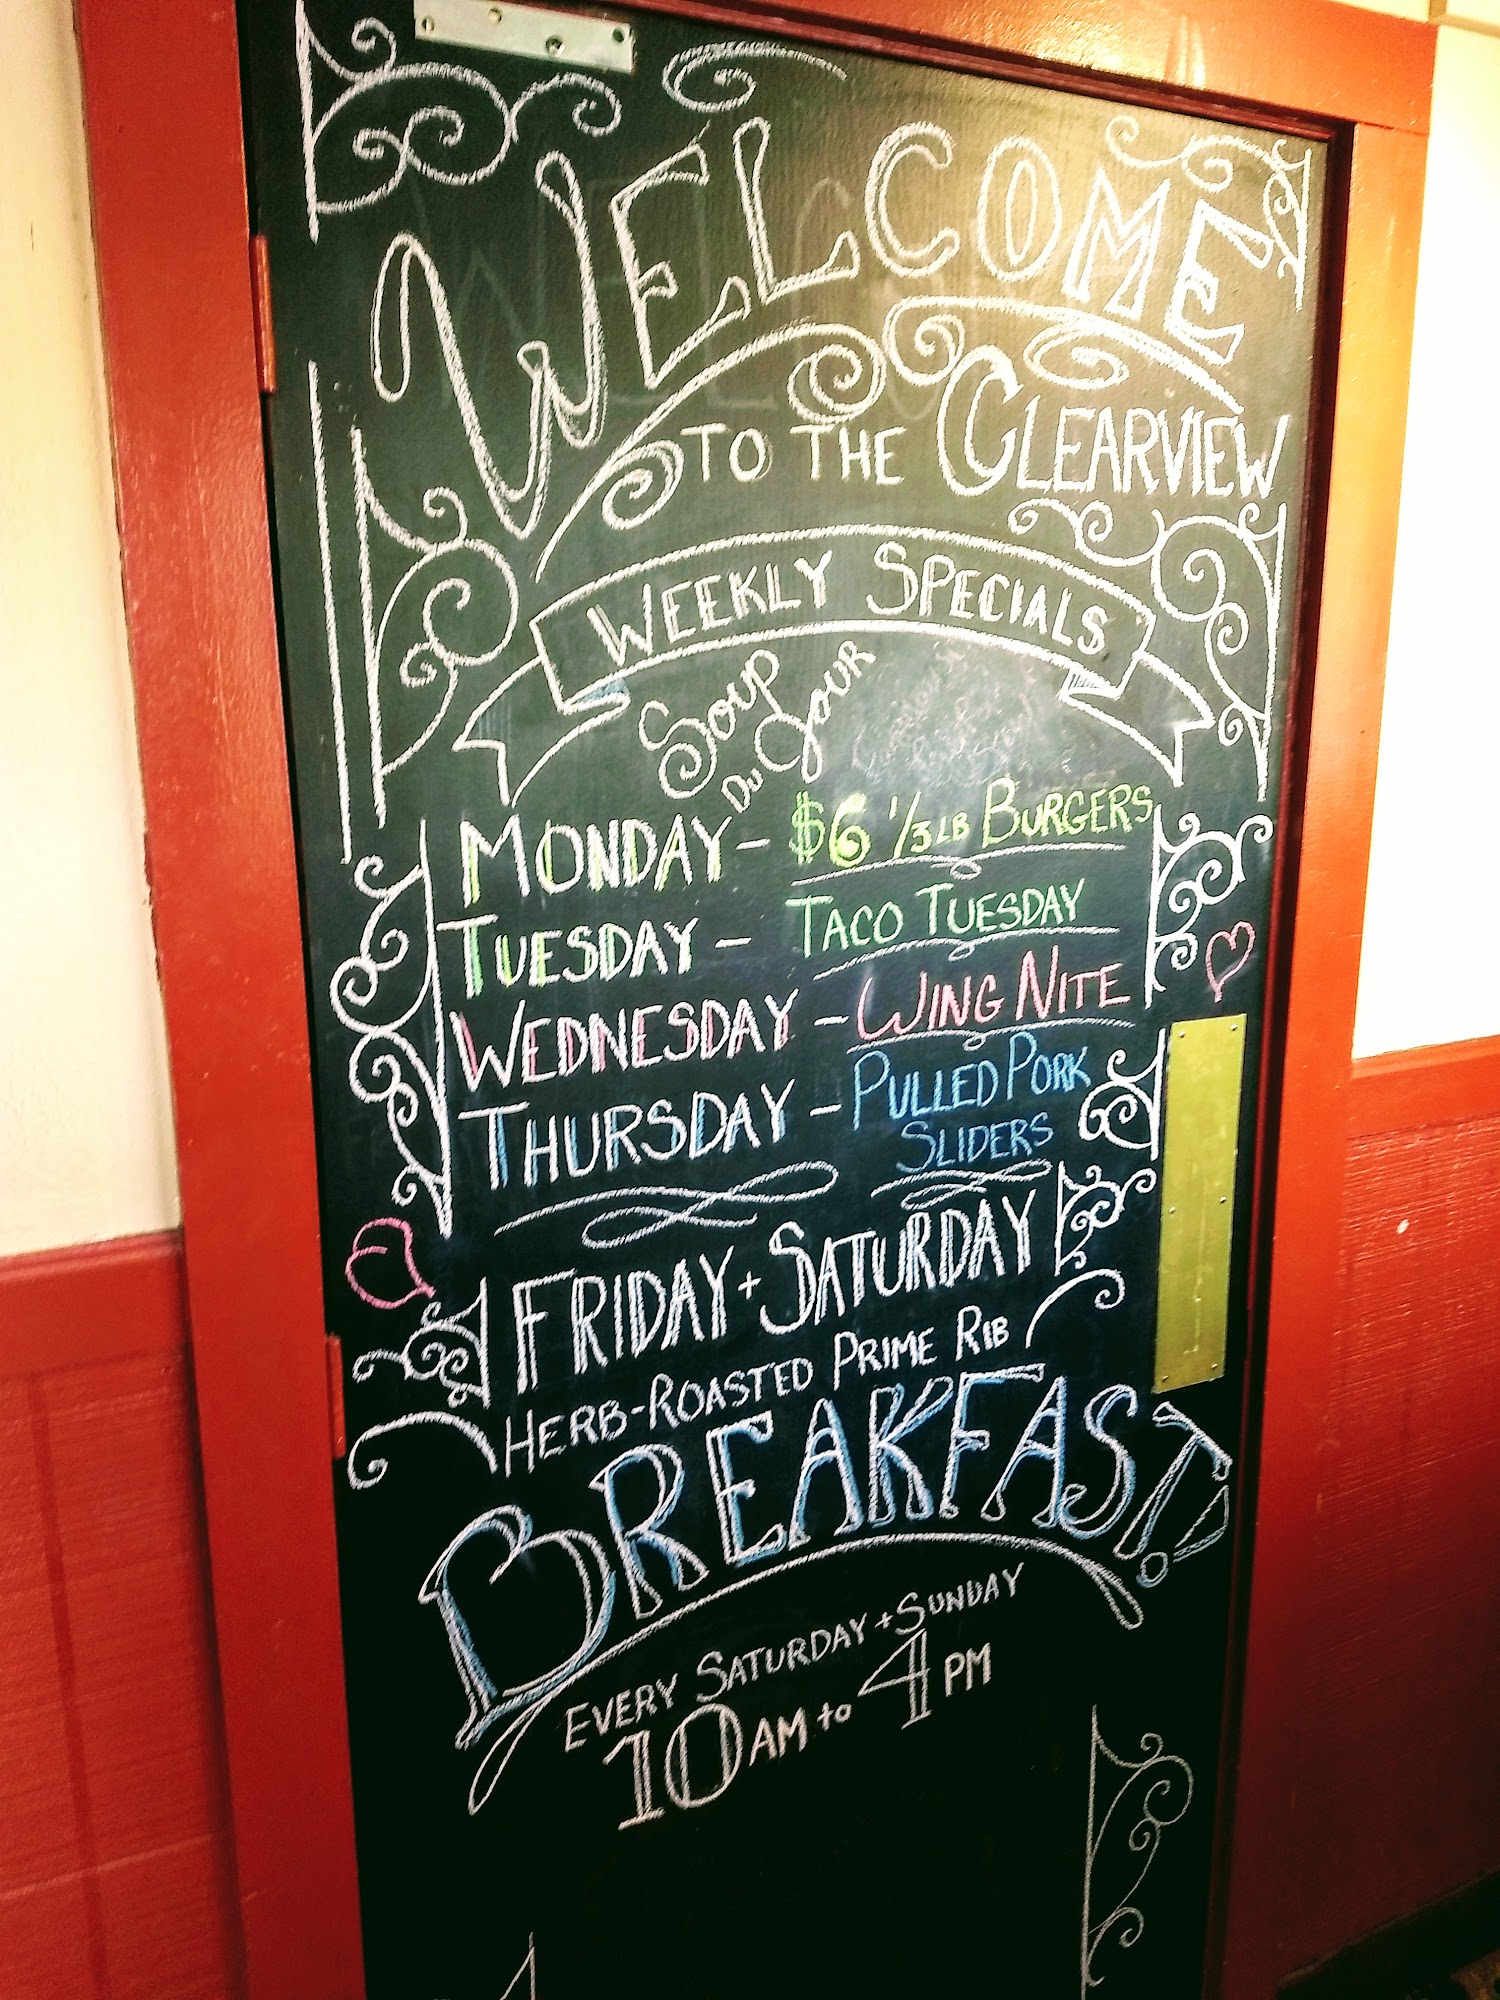 WELCOME
TO THE CLEARVIEW
WEEKLY SPECIALS
SOUP
DU JOUR
MONDAY - $6 1/3 LB BURGERS
TUESDAY - TACO TUESDAY
WEDNESDAY - WING NITE
THURSDAY - PULLED PORK
SLIDERS
FRIDAY + SATURDAY
HERB-ROASTED PRIME RIB
BREAKFAST!
EVERY SATURDAY + SUNDAY
10 AM to 4 PM